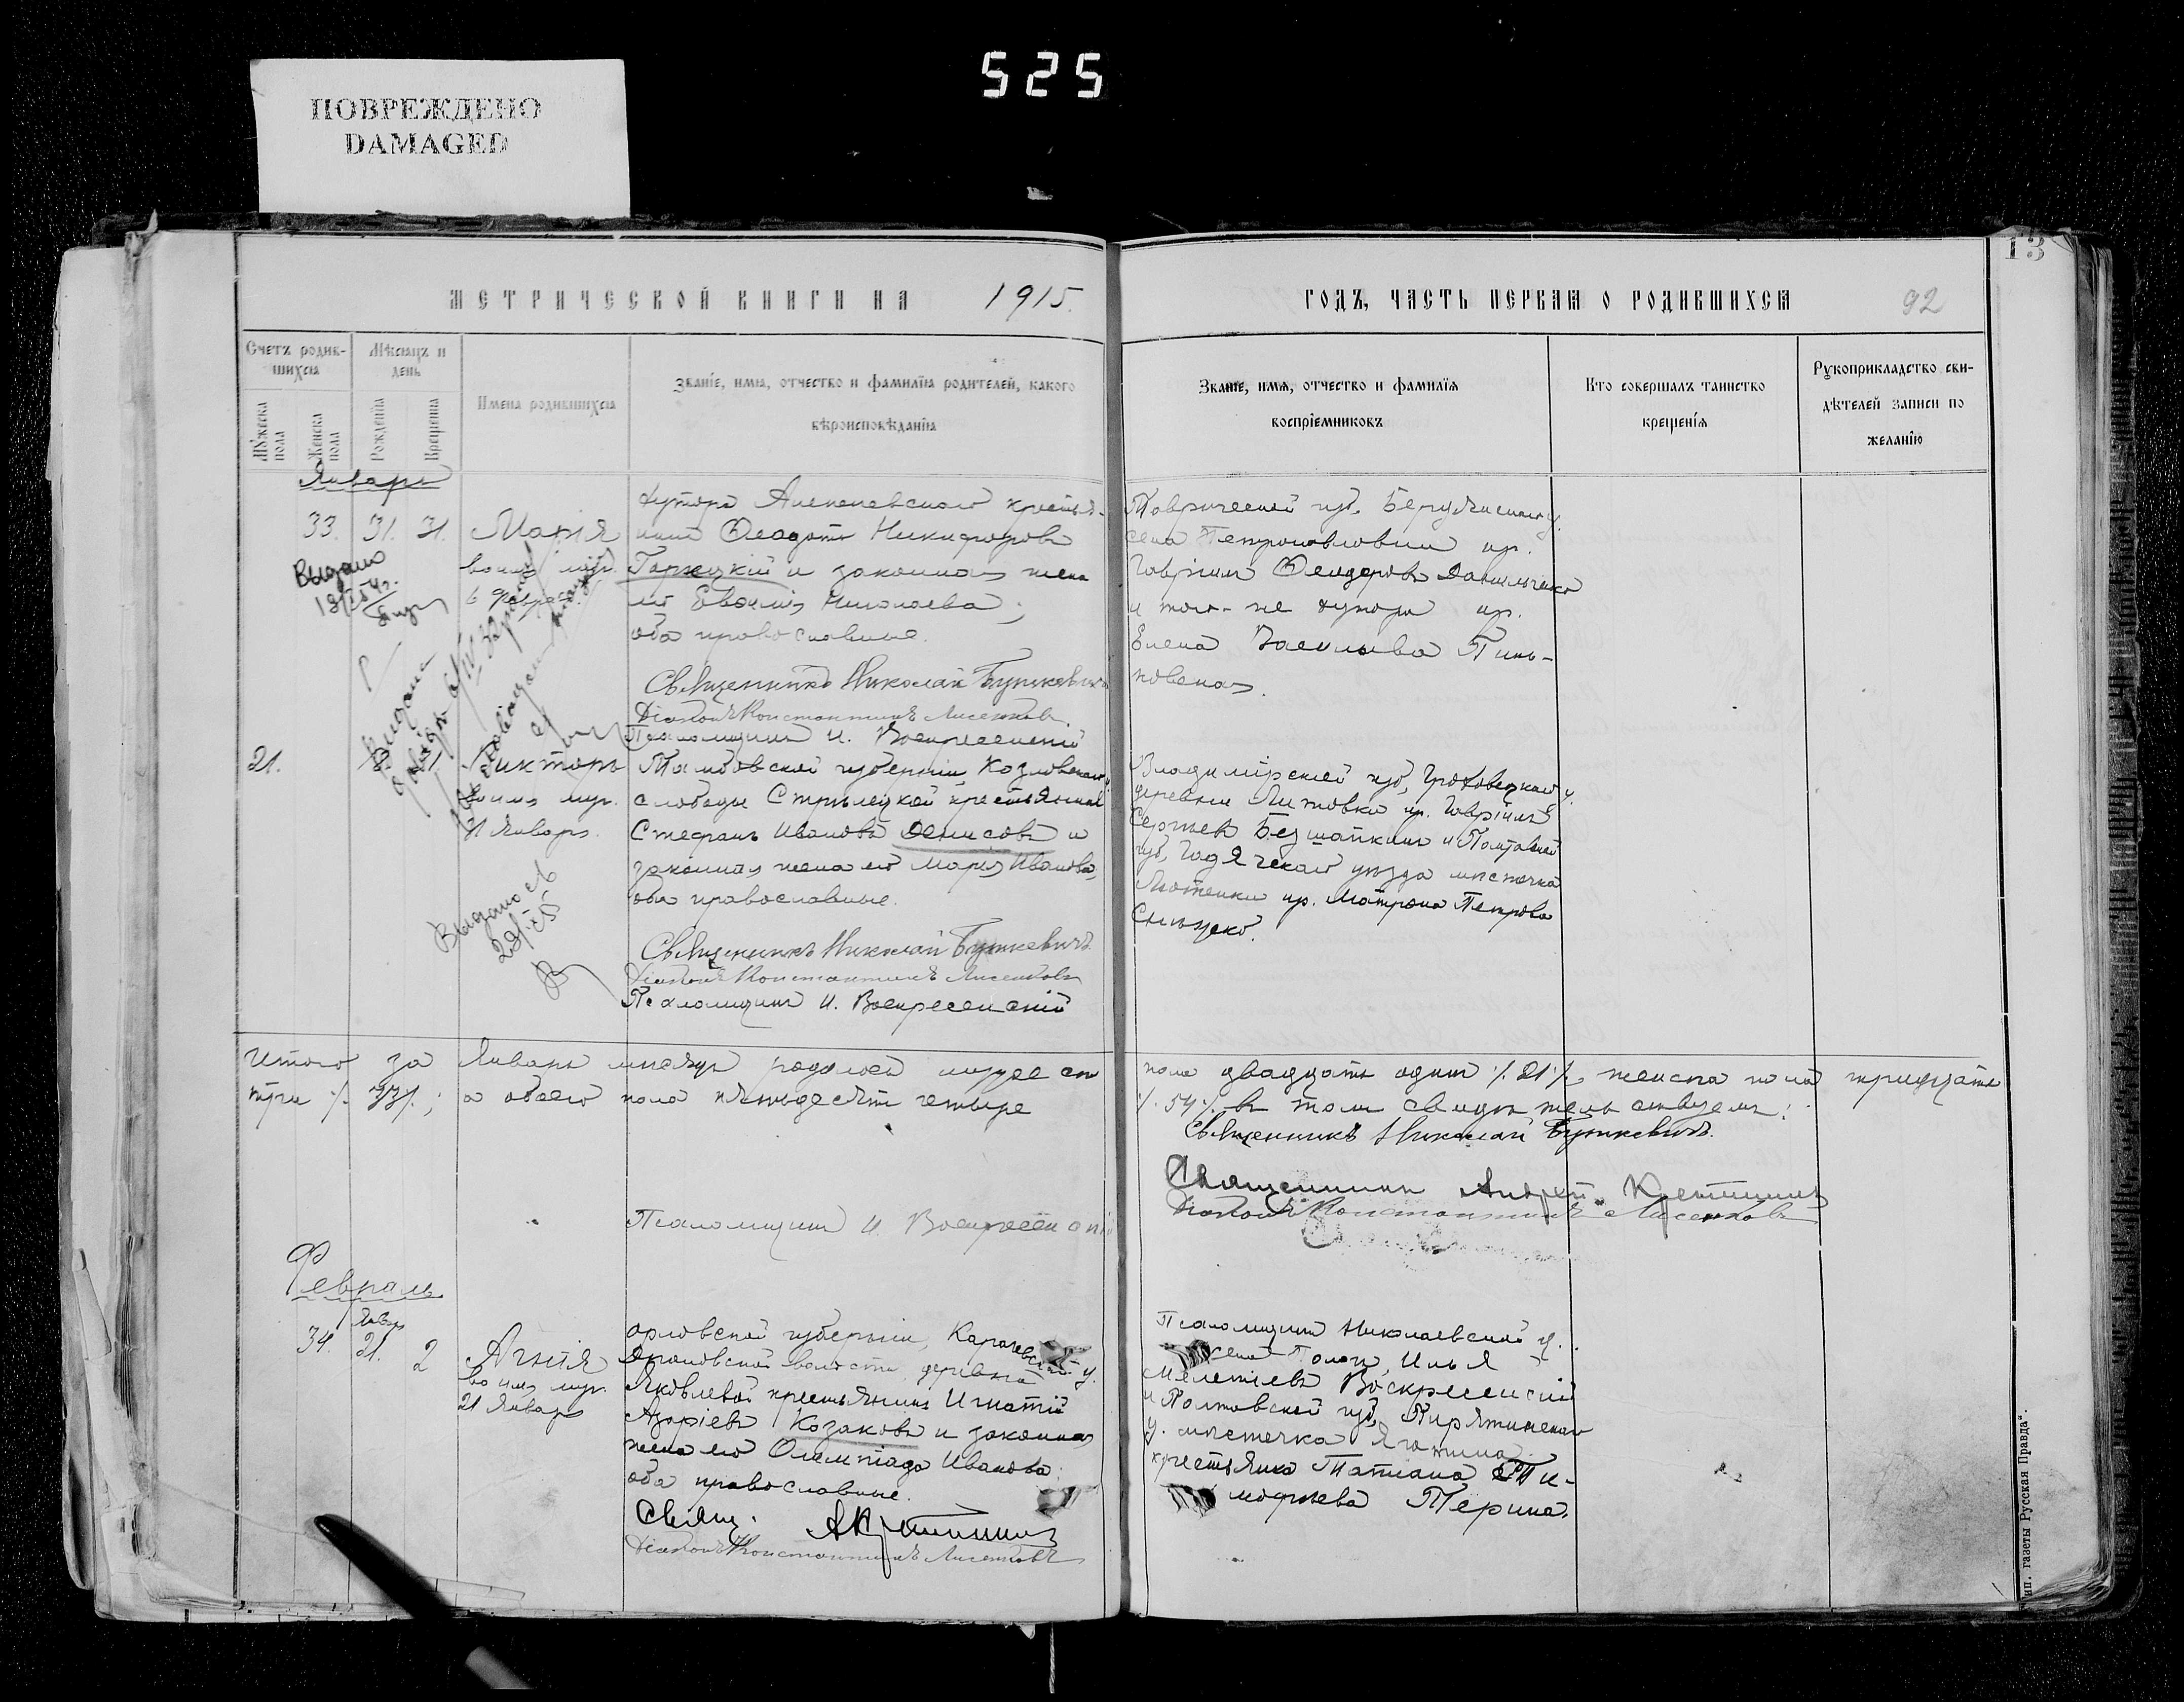 525
ПОВРЕЖДЕНО
DAMAGED
13
МЕТРИЧЕСКОЙ КНИГИ НА 1915.
ГОДЪ, ЧАСТЬ ПЕРВАЯ О РОДИВШИХСЯ
92
Счетъ родив-
шихся
Мужеска пола
Женска пола
Мѣсяцъ и
день
Рожденія
Крещенія
Имена родившихся
Званіе, имя, отчество и фамилія родителей, какого
вѣроисповѣданія
Званіе, имя, отчество и фамилія
воспріемниковъ
Кто совершалъ таинство
крещенія
Рукоприкладство сви-
дѣтелей записи по
желанію
Январь
33. 31. 31. Марія
во имя
6 Февраля.
Выдано
хутора крестья-
нинъ Ѳеодотъ Никифоровъ
и законная жена
его Евдокія Николаева;
оба православные.
Священникъ Николай Буткевичъ
Діаконъ Константинъ Лисенковъ
Псаломщикъ И. Воскресенскій
Таврической губ. Бердянскаго у.
села Петропавловки кр.
Гавріилъ Ѳеодоровъ Данильченко
и того-же хутора кр.
Елена Васильева
21. Викторъ
во имя муч.
31 Января.
Тамбовской губерніи, Козловскаго у.
слободы Стрѣлецкой крестьянинъ
Стефанъ Ивановъ Денисовъ и
законная жена его Марія Иванова,
оба православные.
Священникъ Николай Буткевичъ.
Діаконъ Константинъ Лисенковъ
Псаломщикъ И. Воскресенскій
Владимірской губ. Гроховецкаго у.
деревни Литовки кр. Гавріилъ
Сергѣевъ Безшапкинъ и Полтавской
губ. Гадячскаго уѣзда мѣстечка
Лютеньки кр. Матрона Петрова
Выдано
Итого за Январь мѣсяцъ родилось мужеска
пола двадцать одинъ /. 21 /., женска пола тридцать
три /. 33 /.; а обоего пола пятьдесятъ четыре
/. 54 /. въ томъ свидѣтельствуемъ:
Священникъ Николай Буткевичъ.
Священникъ Андрей
Діаконъ Константинъ Лисенковъ
Псаломщикъ И. Воскресенскій
Февраль
Янв.
34. 21. 2 Агнія
во имя муч.
21 Января
Орловской губерніи, Карачевскаго у.
волости деревни
Яковлевой крестьянинъ Игнатій
Азаріевъ Козаковъ и законная
жена его Олимпіада Иванова
оба православные.
Свящ.
Діаконъ Константинъ Лисенковъ
Псаломщикъ Николаевской ц.
Илья
Мелетіевъ Воскресенскій
и Полтавской губ. Пирятинскаго
у. мѣстечка Яготина
крестьянка Татіана Ти-
мофеева
Тип. газеты „Русская Правда“.